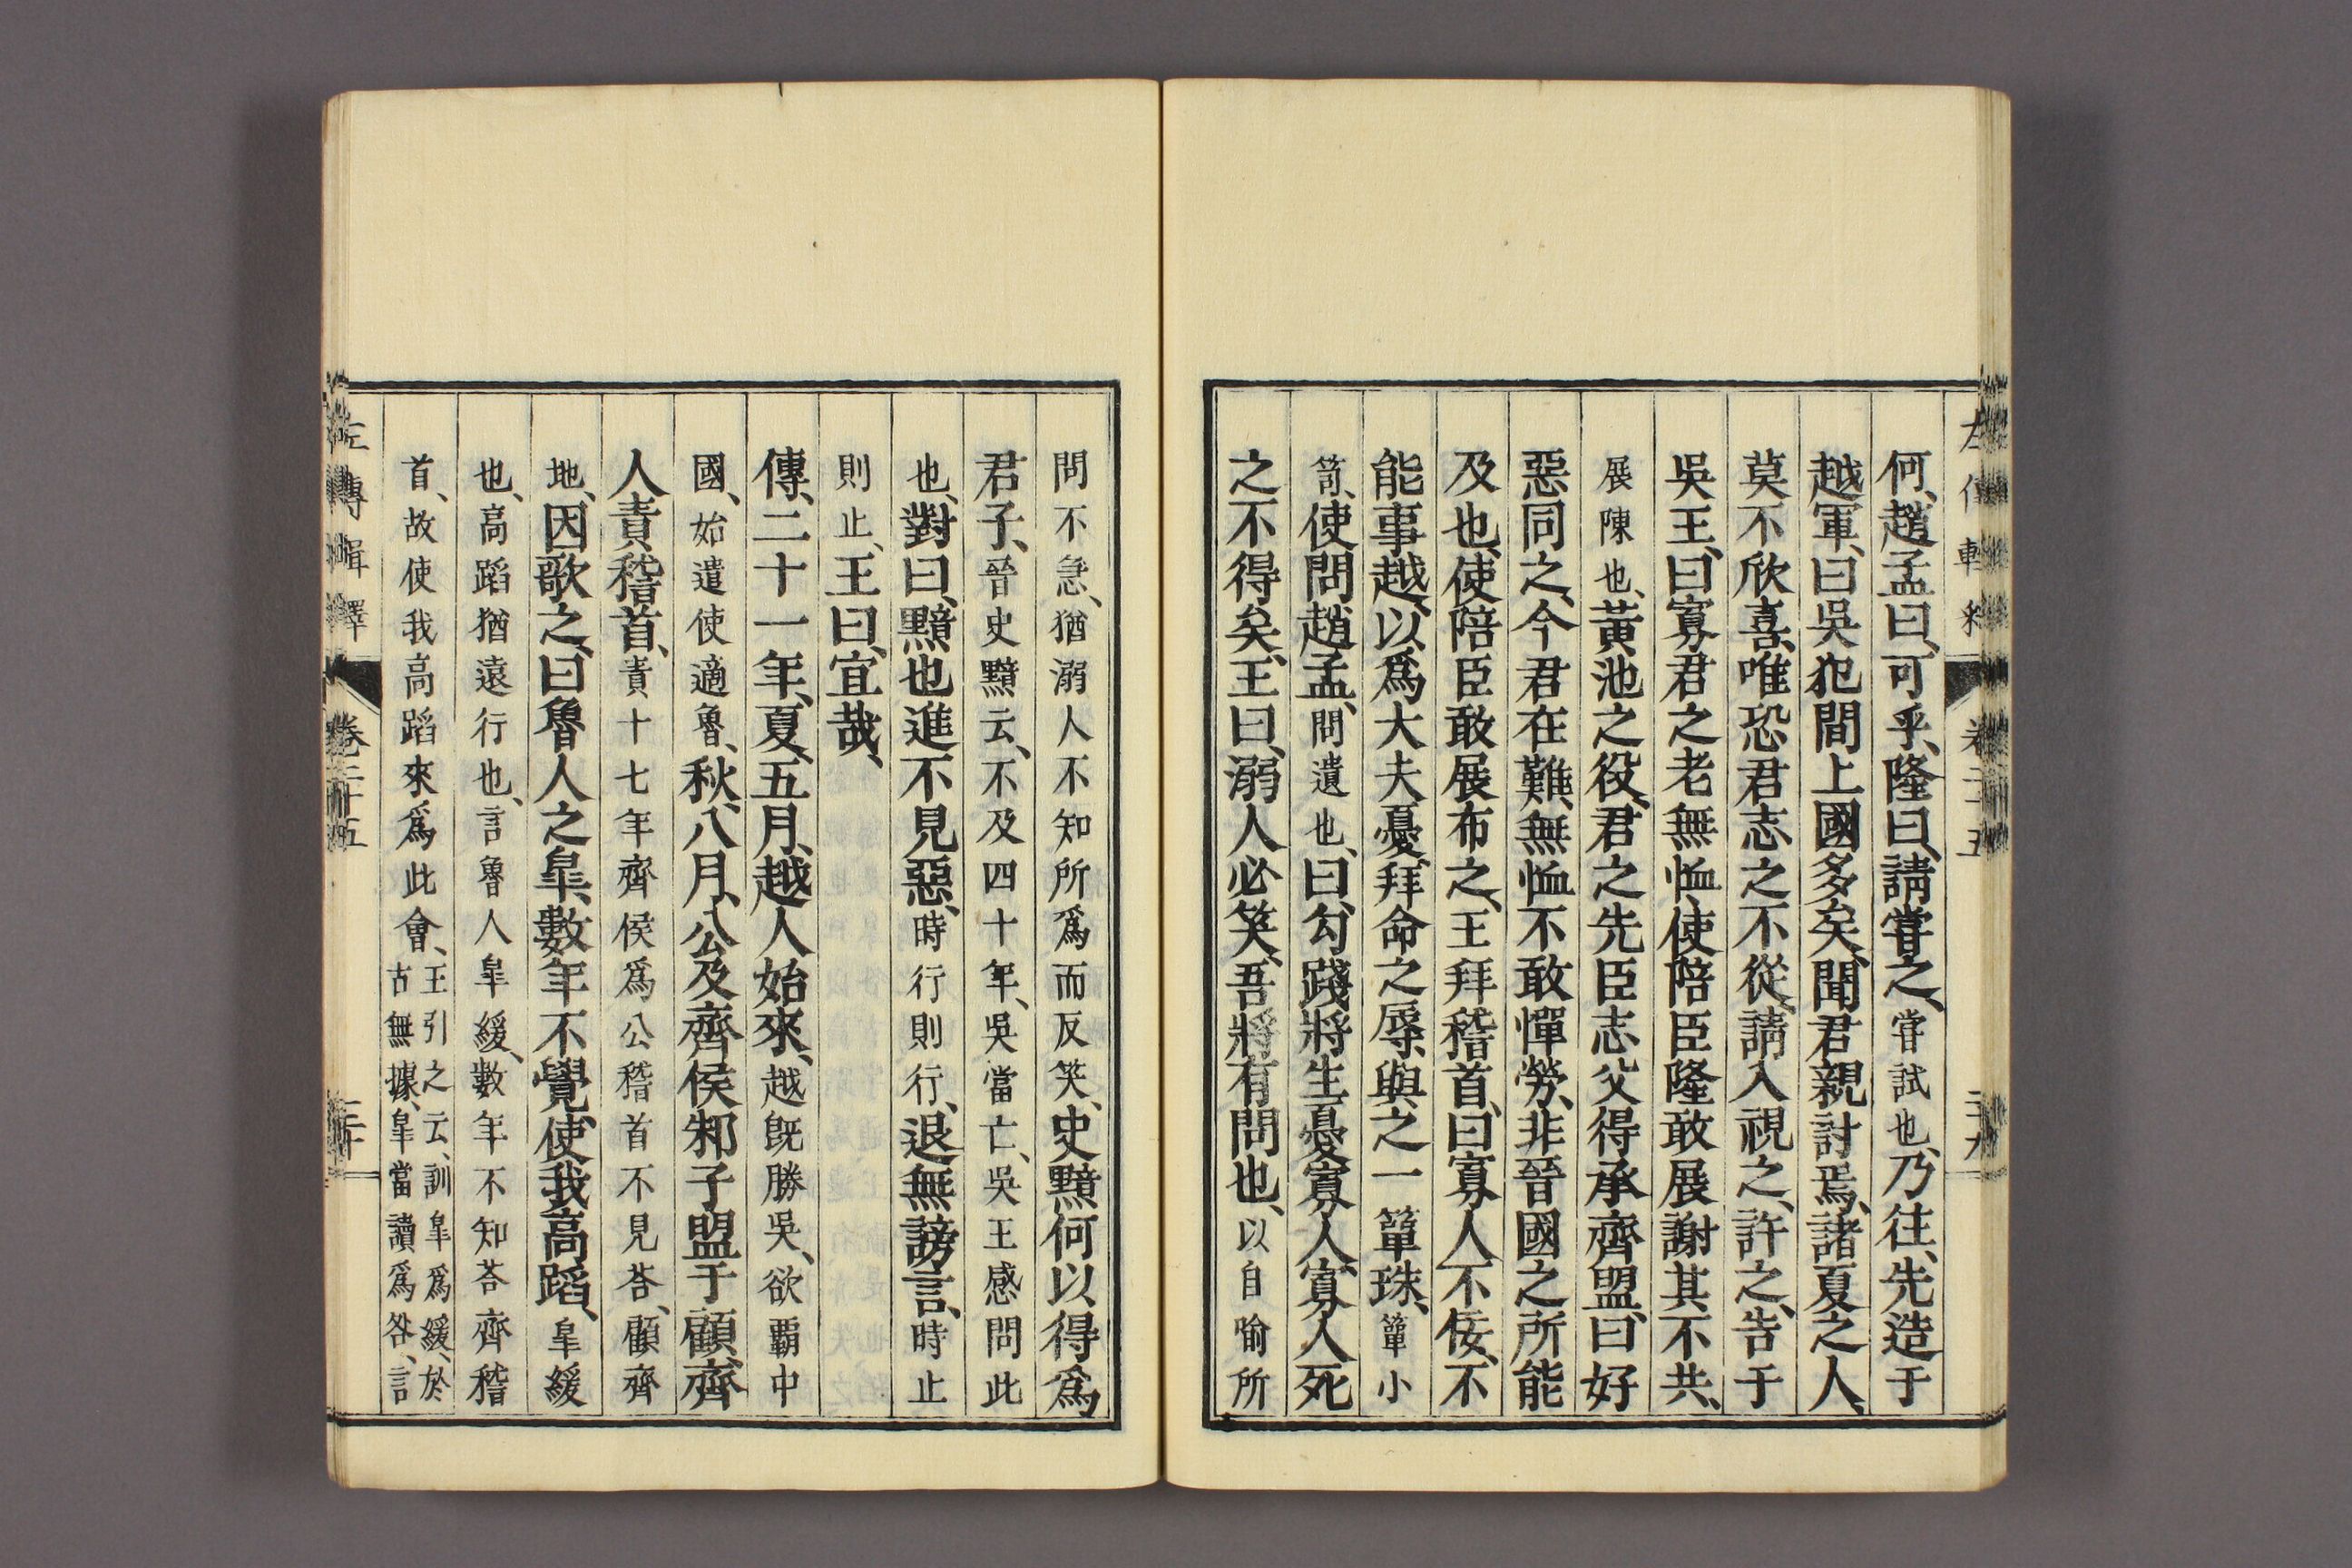 何、趙孟曰、可乎、隆曰、請嘗之、嘗試也、乃往、先造于
越軍、曰吳犯間上國多矣、聞君親討焉、諸夏之人、
莫不欣喜、唯恐君志之不從、請入視之、許之、告于
吳王、曰寡君之老無恤、使陪臣隆敢展謝其不共、
展陳也、黃池之役、君之先臣志父得承齊盟、曰好
惡同之、今君在難、無恤不敢憚勞、非晉國之所能
及也、使陪臣敢展布之、王拜稽首、曰寡人不佞、不
能事越、以爲大夫憂、拜命之辱、與之一簞珠、簞小
笥、使問趙孟、問遺也、曰、勾踐將生憂寡人、寡人死
之不得矣、王曰、溺人必笑、吾將有問也、以自喻所
問不急、猶溺人不知所爲而反笑、史黯何以得爲
君子、晉史黯云、不及四十年、吳當亡、吳王感問此
也、對曰、黯也進不見惡、時行則行、退無謗言、時止
則止、王曰、宜哉、
傳、二十一年、夏、五月、越人始來、越既勝吳、欲霸中
國、始遣使適魯、秋、八月、公及齊侯邾子盟于顧、齊
人責稽首、責十七年齊侯爲公稽首不見荅、顧齊
地、因歌之、曰魯人之皐、數年不覺、使我高蹈、皐緩
也、高蹈猶遠行也、言魯人皐緩、數年不知荅齊稽
首、故使我高蹈來爲此會、王引之云、訓皐爲緩、於古無據、皐當讀爲咎、言
左傳輯釋 卷二十五